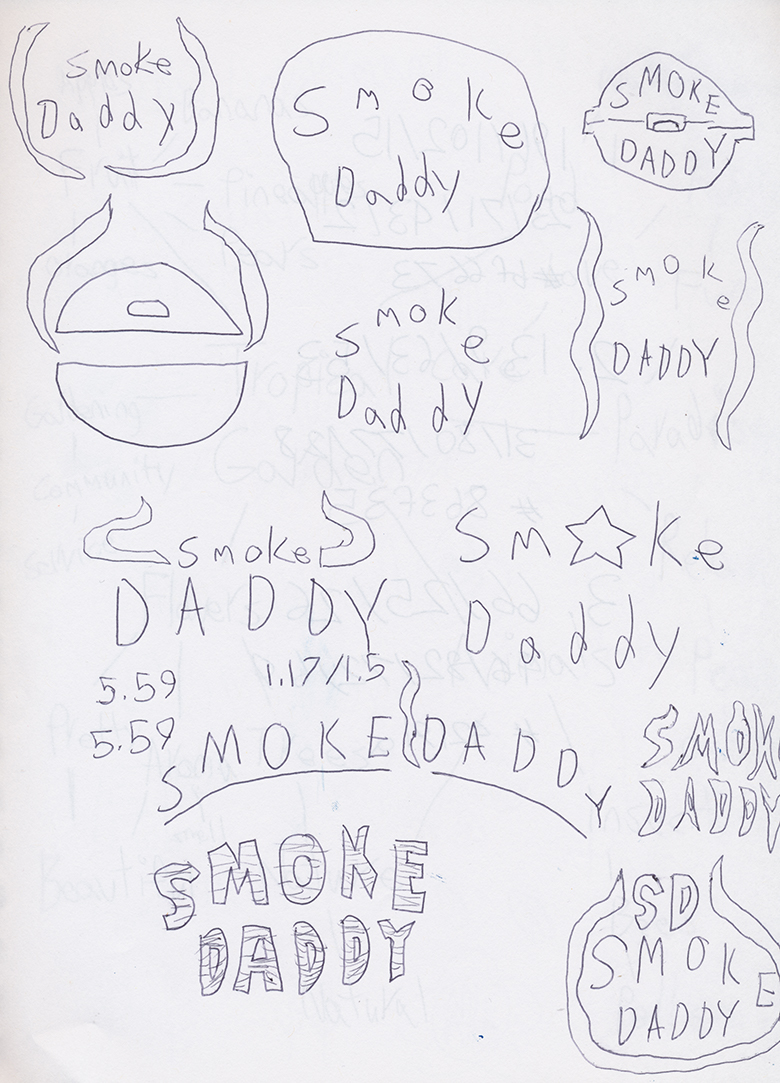 Smoke
Daddy
Smoke
Daddy
SMOKE
DADDY
smoke
Daddy
smoke
DADDY
smoke
DADDY
Sm ke
Daddy
5.59
1.17/1.5
5.59
SMOKE DADDY
SMOK
DADDY
SMOKE
DADDY
SD
SMOKE
DADDY